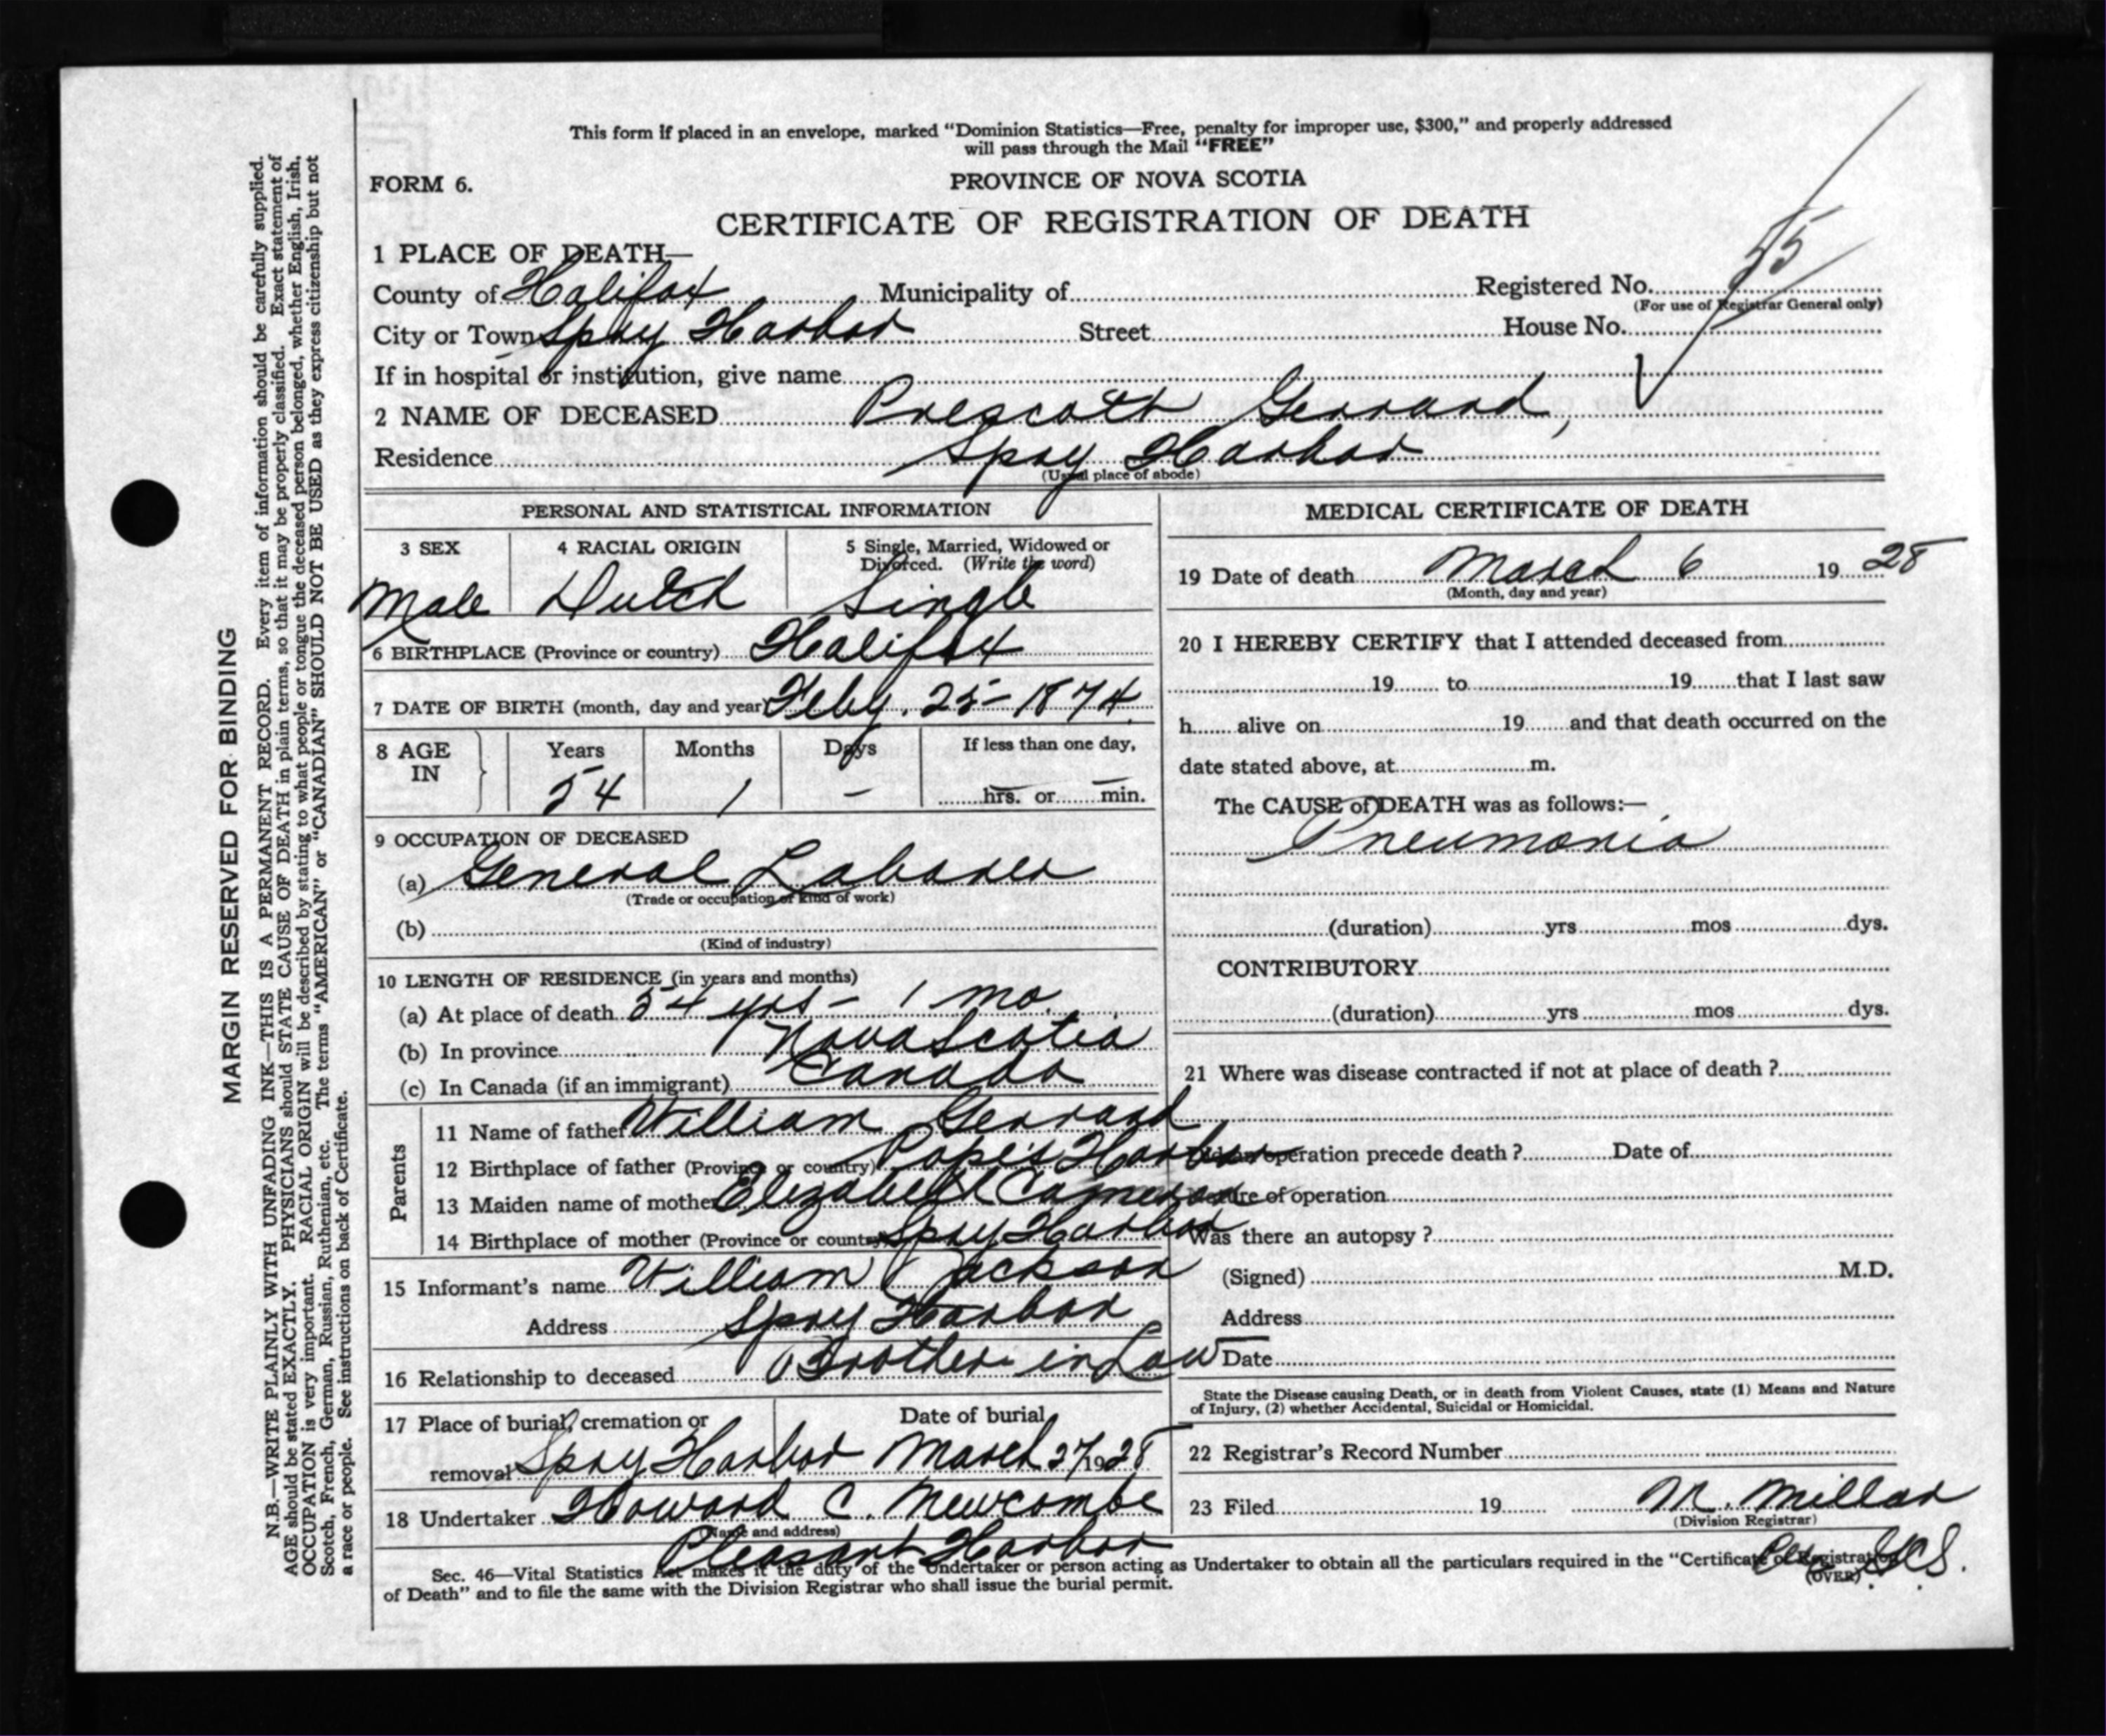 This form if placed in an envelope, marked “Dominion Statistics—Free, penalty for improper use, $300,” and properly addressed
will pass through the Mail “FREE”
FORM 6.
PROVINCE OF NOVA SCOTIA
CERTIFICATE OF REGISTRATION OF DEATH
1 PLACE OF DEATH—
County of Halifax Municipality of Registered No. 55
(For use of Registrar General only)
City or Town Spry Harbor Street House No.
If in hospital or institution, give name
2 NAME OF DECEASED Prescott Gerrard,
Residence Spry Harbor
(Usual place of abode)
PERSONAL AND STATISTICAL INFORMATION
3 SEX 4 RACIAL ORIGIN 5 Single, Married, Widowed or
Divorced. (Write the word)
Male Dutch Single
6 BIRTHPLACE (Province or country) Halifax
7 DATE OF BIRTH (month, day and year) Feby. 25 - 1874
8 AGE IN Years Months Days If less than one day,
54 1 — hrs. or — min.
9 OCCUPATION OF DECEASED
(a) General Laborer
(Trade or occupation or kind of work)
(b)
(Kind of industry)
10 LENGTH OF RESIDENCE (in years and months)
(a) At place of death 54 yrs - 1 mo.
(b) In province Nova Scotia
(c) In Canada (if an immigrant) Canada
Parents
11 Name of father William Gerrard
12 Birthplace of father (Province or country) Pope's Harbor
13 Maiden name of mother Elizabeth Cameron
14 Birthplace of mother (Province or country) Spry Harbor
15 Informant's name William Jackson
Address Spry Harbor
16 Relationship to deceased Brother in Law
17 Place of burial, cremation or Date of burial
removal Spry Harbor March 27 1928
18 Undertaker Howard C. Newcombe
(Name and address)
Pleasant Harbor
MEDICAL CERTIFICATE OF DEATH
19 Date of death March 6 1928
(Month, day and year)
20 I HEREBY CERTIFY that I attended deceased from
19 to 19 that I last saw
h alive on 19 and that death occurred on the
date stated above, at m.
The CAUSE of DEATH was as follows:—
Pneumonia
(duration) yrs mos dys.
CONTRIBUTORY
(duration) yrs mos dys.
21 Where was disease contracted if not at place of death ?
operation precede death ? Date of
Nature of operation
Was there an autopsy ?
(Signed) M.D.
Address
Date
State the Disease causing Death, or in death from Violent Causes, state (1) Means and Nature
of Injury, (2) whether Accidental, Suicidal or Homicidal.
22 Registrar's Record Number
23 Filed 19 M. Millar
(Division Registrar)
Sec. 46—Vital Statistics Act makes it the duty of the Undertaker or person acting as Undertaker to obtain all the particulars required in the “Certificate of Registration
of Death” and to file the same with the Division Registrar who shall issue the burial permit.
(OVER)
MARGIN RESERVED FOR BINDING
N.B.—WRITE PLAINLY WITH UNFADING INK—THIS IS A PERMANENT RECORD. Every item of information should be carefully supplied.
AGE should be stated EXACTLY. PHYSICIANS should STATE CAUSE OF DEATH in plain terms, so that it may be properly classified. Exact statement of
OCCUPATION is very important. RACIAL ORIGIN will be described by stating to what people or tongue the deceased person belonged, whether English, Irish,
Scotch, French, German, Russian, Ruthenian, etc. The terms “AMERICAN” or “CANADIAN” SHOULD NOT BE USED as they express citizenship but not
a race or people. See instructions on back of Certificate.